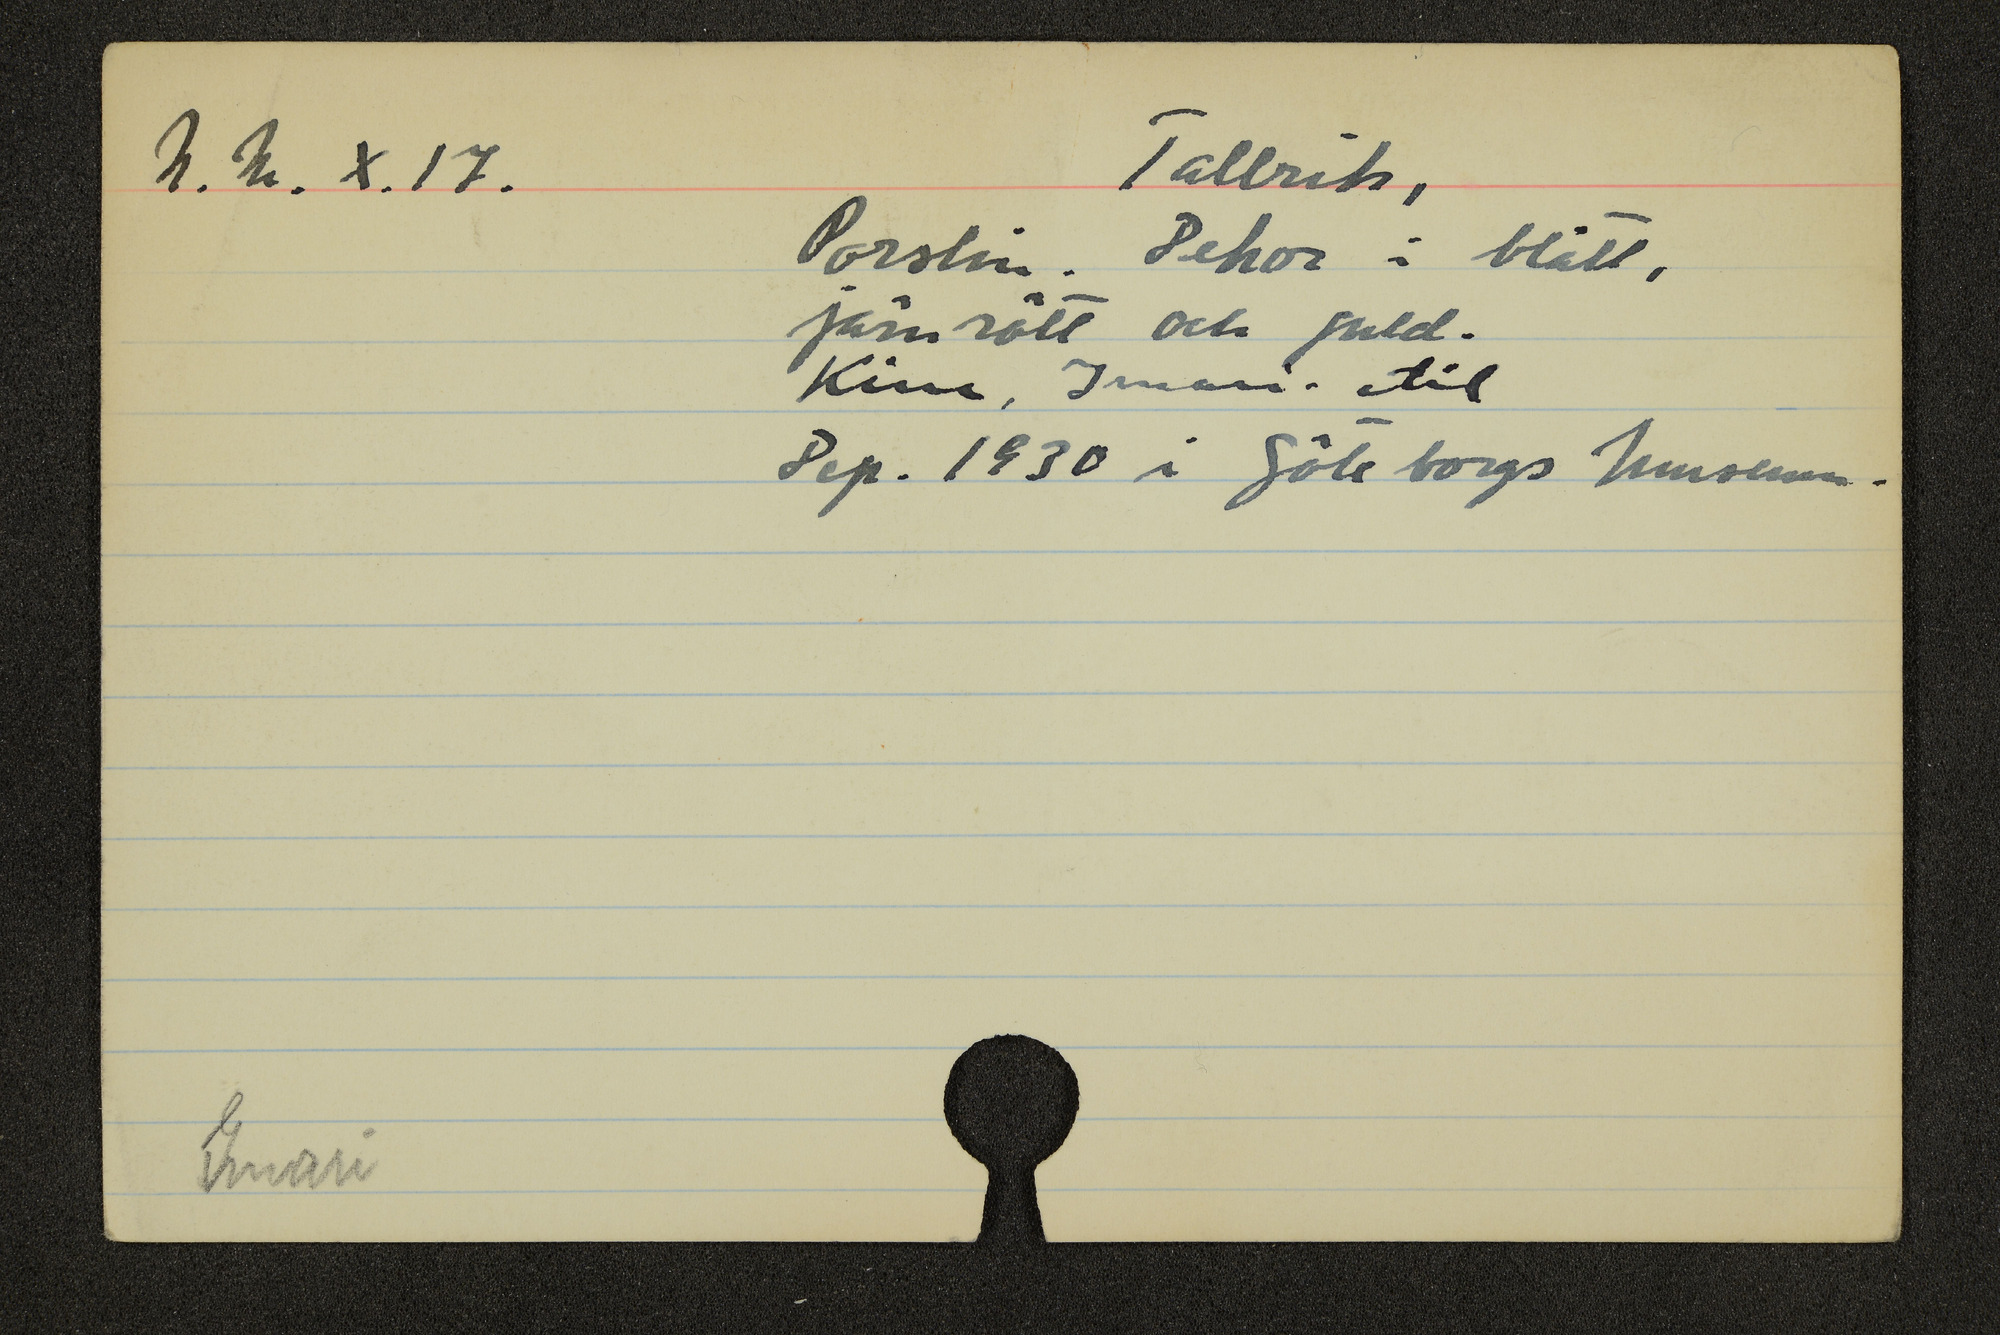 N. M. X. 17.
Tallrik,
Porslin. Dekor i blått,
järnrött och guld.
Kina, Imari-stil
Dep. 1930 i Göteborgs Museum.
Imari